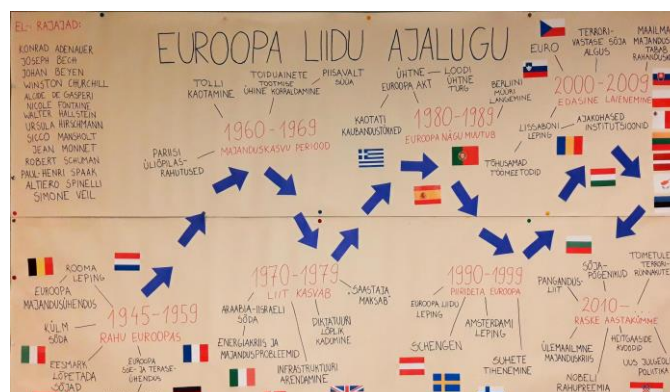 EL-i RAJAJAD:
KONRAD ADENAUER
JOSEPH BECH
JOHAN BEYEN
WINSTON CHURCHILL
ALCIDE DE GASPERI
NICOLE FONTAINE
WALTER HALLSTEIN
URSULA HIRSCHMANN
SICCO MANSHOLT
JEAN MONNET
ROBERT SCHUMAN
PAUL-HENRI SPAAK
ALTIERO SPINELLI
SIMONE VEIL
EUROOPA LIIDU AJALUGU
TOLLI
KAOTAMINE
TOIDUAINETE
TOOTMISE
ÜHINE KORRALDAMINE
PIISAVALT
SÜÜA
1960-1969
MAJANDUSKASVU PERIOOD
PARIISI
ÜLIÕPILAS-
RAHUTUSED
KAOTATI
KAUBANDUSTÕKKED
ÜHTNE
EUROOPA AKT
LOODI
ÜHTNE
TURG
BERLIINI
MÜÜRI
LANGEMINE
1980-1989
EUROOPA NÄGU MUUTUB
TÕHUSAMAD
TÖÖMEETODID
EURO
TERRORI-
VASTASE SÕJA
ALGUS
MAAILMA
MAJANDUS
TABAB
RAHANDUS
2000-2009
EDASINE LAIENEMINE
LISSABONI
LEPING
AJAKOHASED
INSTITUTSIOONID
ROOMA
LEPING
EUROOPA
MAJANDUSÜHENDUS
1945-1959
RAHU EUROOPAS
KÜLM
SÕDA
EESMÄRK
LÕPETADA
SÕJAD
EUROOPA
SÖE- JA TERASE-
ÜHENDUS
1970-1979
LIIT KASVAB
"SAASTAJA
MAKSAB"
ARAABIA-IISRAELI
SÕDA
DIKTATUURI
LÕPLIK
KADUMINE
ENERGIAKRIIS JA
MAJANDUSPROBLEEMID
INFRASTRUKTUURI
ARENDAMINE
1990-1999
PIIRIDETA EUROOPA
EUROOPA LIIDU
LEPING
AMSTERDAMI
LEPING
SCHENGEN
SUHETE
TIHENEMINE
SÕJA-
PÕGENIKUD
PANGANDUS-
LIIT
2010-
RASKE AASTAKÜMME
ÜLEMAAILMNE
MAJANDUSKRIIS
HEITGAASIDE
KVOODID
NOBELI
RAHUPREEMIA